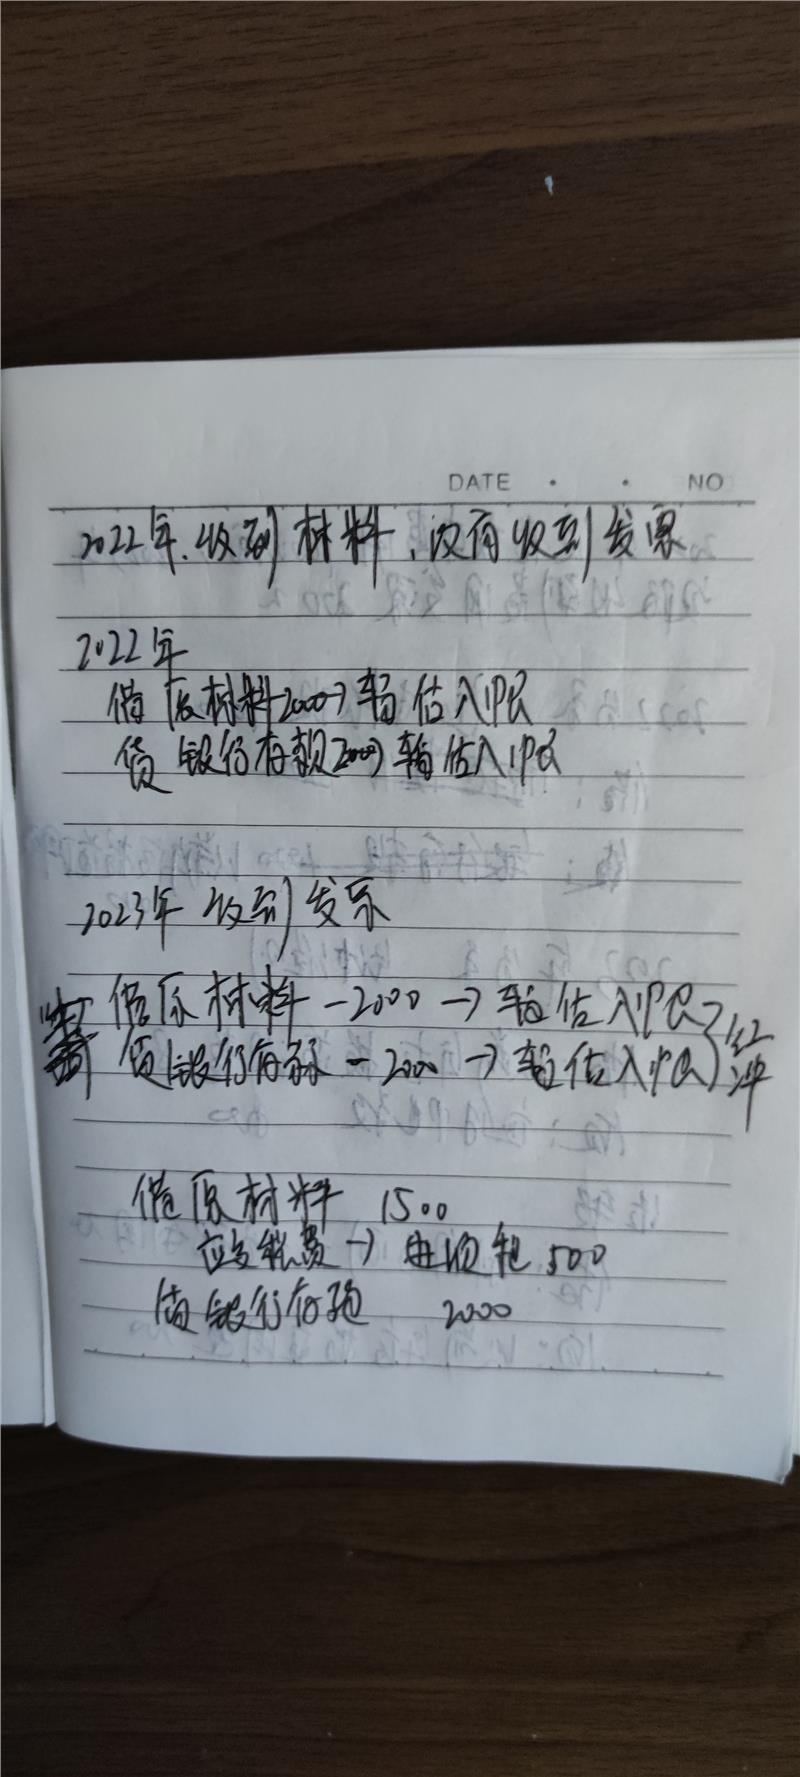 DATE · · NO
2022年.收到材料,没有收到发票
2022年
借 原材料2000→暂估入库
贷 银行存款2000→暂估入库
2023年 收到发票
借原材料 -2000 → 暂估入库
贷银行存款 -2000 → 暂估入库
红冲
借原材料 1500
应交税费→进项税 500
贷银行存款 2000